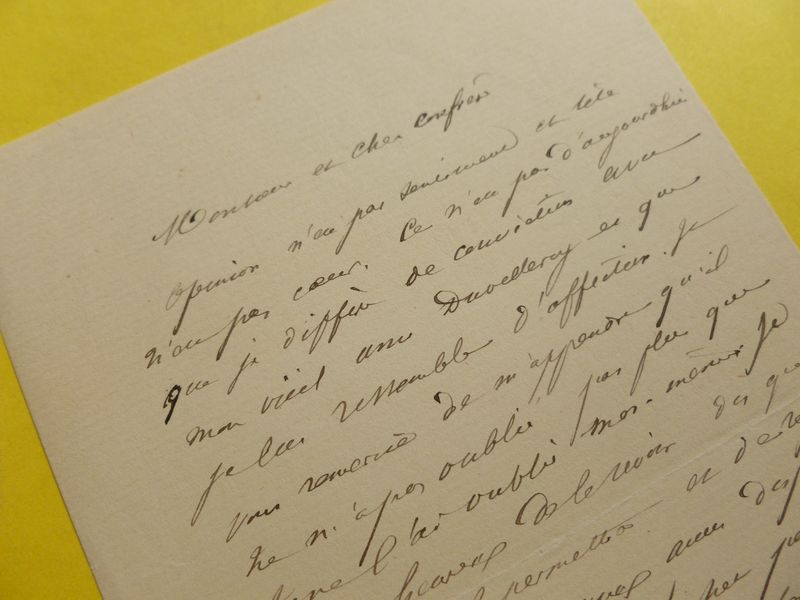 Monsieur et cher confrère
Opinion n'est pas sentiment et tête
n'est pas cœur. Ce n'est pas d'aujourd'hui
que je diffère de convictions avec
mon vieil ami Duvelleroy et que
je lui ressemble d'affection. Je
vous remercie de m'apprendre qu'il
ne m'a pas oublié, pas plus que
je ne l'ai oublié moi-même. Je
heureux de le revoir dès que
permettra et de